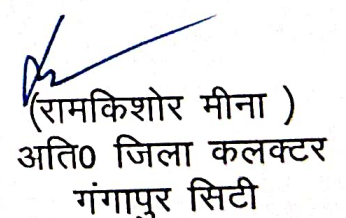 (रामकिशोर मीना )
अति0 जिला कलक्टर
गंगापुर सिटी